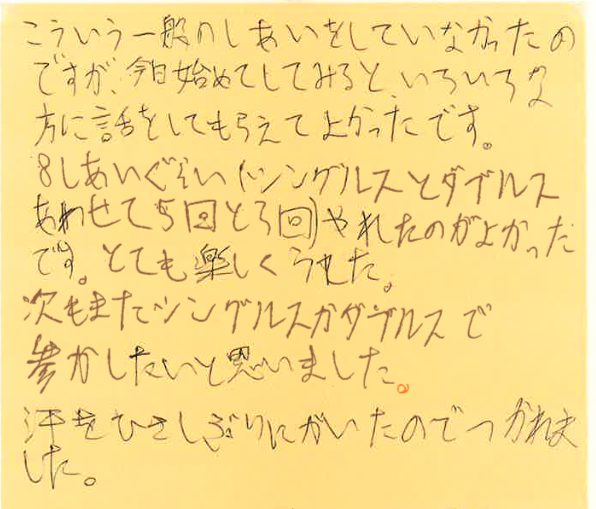 こういう一般のしあいをしていなかったの
ですが、今日始めてしてみると、いろいろな
方に話をしてもらえてよかったです。
8しあいぐらい(シングルスとダブルス
あわせて5回と3回)やれたのがよかった
です。とても楽しく
次もまたシングルスかダブルスで
参かしたいと思いました。
汗をひさしぶりにかいたのでつかれま
した。